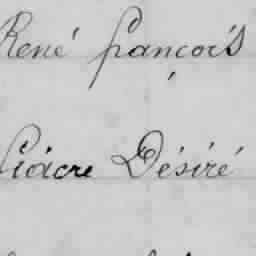 René françois
fiacre Désiré